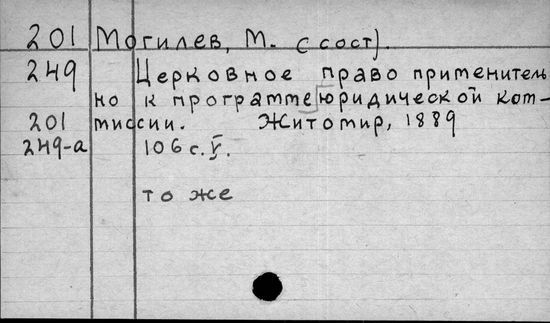 201 Могилев, М. (сост).
249 Церковное право применитель
но к программе юридической ком-
201 миссии. Житомир, 1889
249-а 106 с. V.
то же